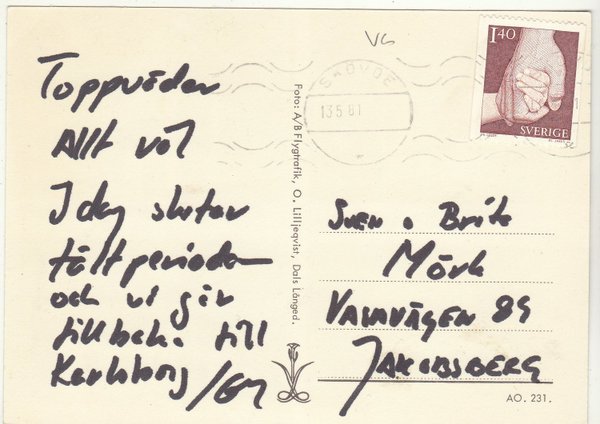 Toppväder
Allt väl
I dag slutar
fältperioden
och vi går
tillbak. till
Karlsborg /
VG
SKÖVDE
13 5 81
1.40
SVERIGE
Foto: A/B Flygtrafik, O. Lilljeqvist, Dals Långed.
Sven o Britt
Mörk
VALLVÄGEN 89
JAKOBSBERG
AO. 231.